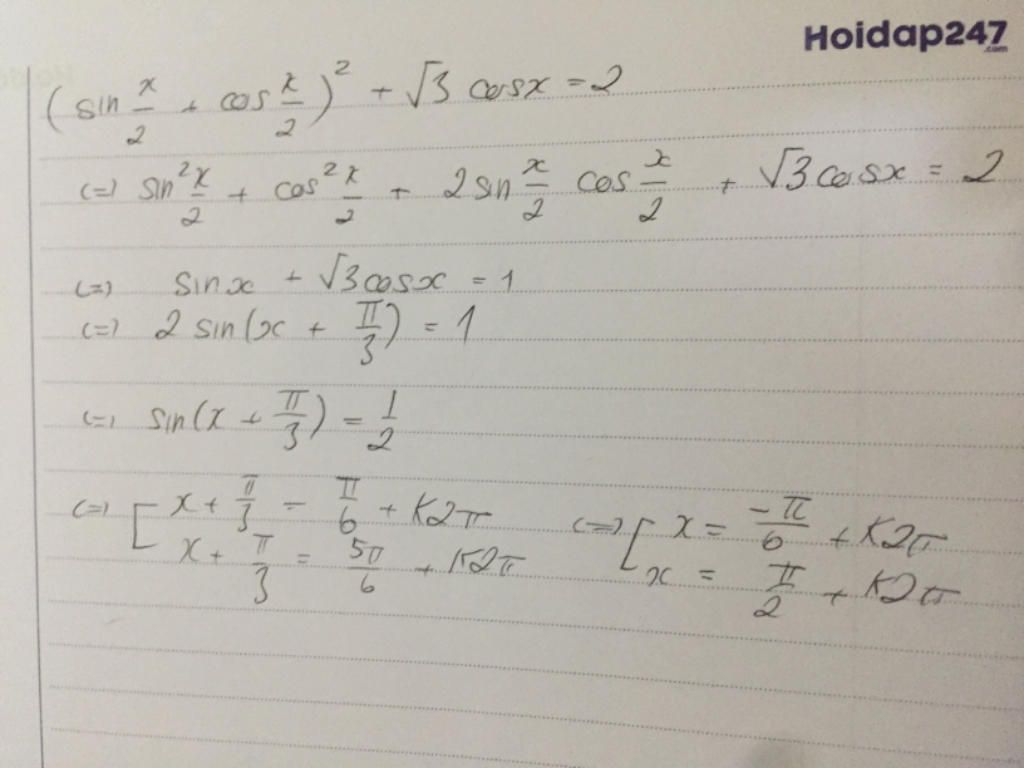 Hoidap247
.com
(sin x/2 + cos x/2)² + √3 cosx = 2
(=) sin² x/2 + cos² x/2 + 2 sin x/2 cos x/2 + √3 cosx = 2
(=) sinx + √3 cosx = 1
(=) 2 sin(x + π/3) = 1
(=) sin(x + π/3) = 1/2
(=) [ x + π/3 = π/6 + K2π (=) [ x = -π/6 + K2π
x + π/3 = 5π/6 + K2π x = π/2 + K2π